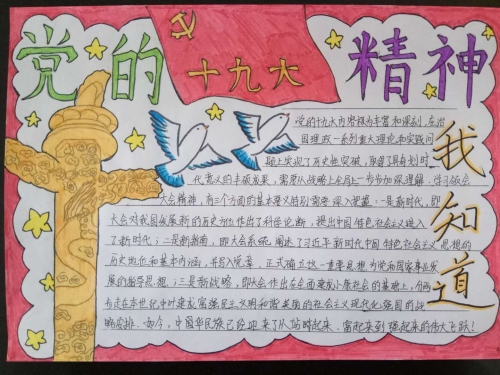 党的
十九大
精神
我知道
党的十九大内容极为丰富和深刻,在治
国理政一系列重大理论和实践问
题上实现了历史性突破,取得了具有划时
代意义的丰硕成果,需要从战略上全局上一步步加深理解。学习领会
大会精神,有三个方面的基本要义特别需要深入把握:一是新时代,即
大会对我国发展新的历史方位作出了科学论断,提出中国特色社会主义进入
了新时代;二是新指南,即大会系统阐述了习近平新时代中国特色社会主义思想的
历史地位和基本内涵,并写入党章,正式确立这一重要思想为党和国家事业发
展的指导思想;三是新战略,即大会作出在全面建成小康社会的基础上,分两
步走在本世纪中叶建成富强民主文明和谐美丽的社会主义现代化强国的战
略安排。如今,中国华民族已经迎来了从站起来、富起来到强起来的伟大飞跃!